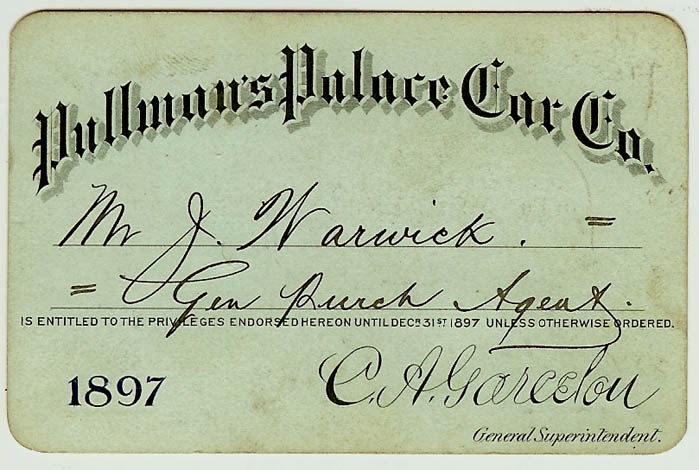 Pullman's Palace Car Co.
Mr J. Warwick. =
= Gen Purch Agent.
IS ENTITLED TO THE PRIVILEGES ENDORSED HEREON UNTIL DECR 31ST 1897 UNLESS OTHERWISE ORDERED.
1897
C. A. Garcelon
General Superintendent.